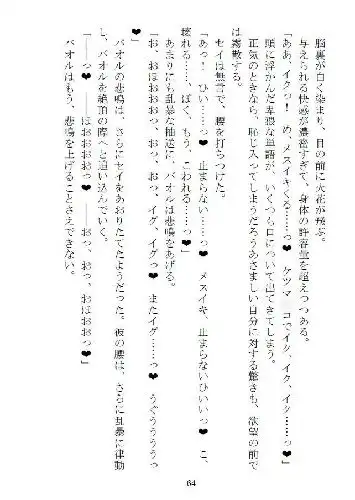 脳裏が白く染まり、目の前に火花が飛ぶ。
与えられる快感が濃密すぎて、身体の許容量を超えつつある。
「ああ、イクッ! め、メスイキ、くる……っ♥ ケツマ コでイク、イク、イク……っ♥」
頭に浮かんだ卑猥な単語が、いくつも口について出てきてしまう。
正気のときなら、恥じ入ってしまうだろうあさましい自分に対する驚きも、欲望の前で
は霧散する。
セイは無言で、腰を打ちつけた。
「あっ! ひい……っ♥ 止まらない……っ♥ メスイキ、止まらないひいいっ♥ こ、
壊れる……、ぼく、もう、こわれる……っ♥」
あまりにも乱暴な抽送に、パオルは悲鳴をあげる。
「お、おほおおおっ♥ お、おっ、イグ、イグっ♥ またイグ……っ♥ うぐうううう
っ♥」
パオルの悲鳴は、さらにセイをあおりたてたようだった。彼の腰は、さらに乱暴に律動
し、パオルを絶頂の際へと追い込んでいく。
「――っ♥ ――ほおおおおっ♥ ――おっ、おっ、おほおおっ♥」
パオルはもう、悲鳴を上げることさえできない。
64